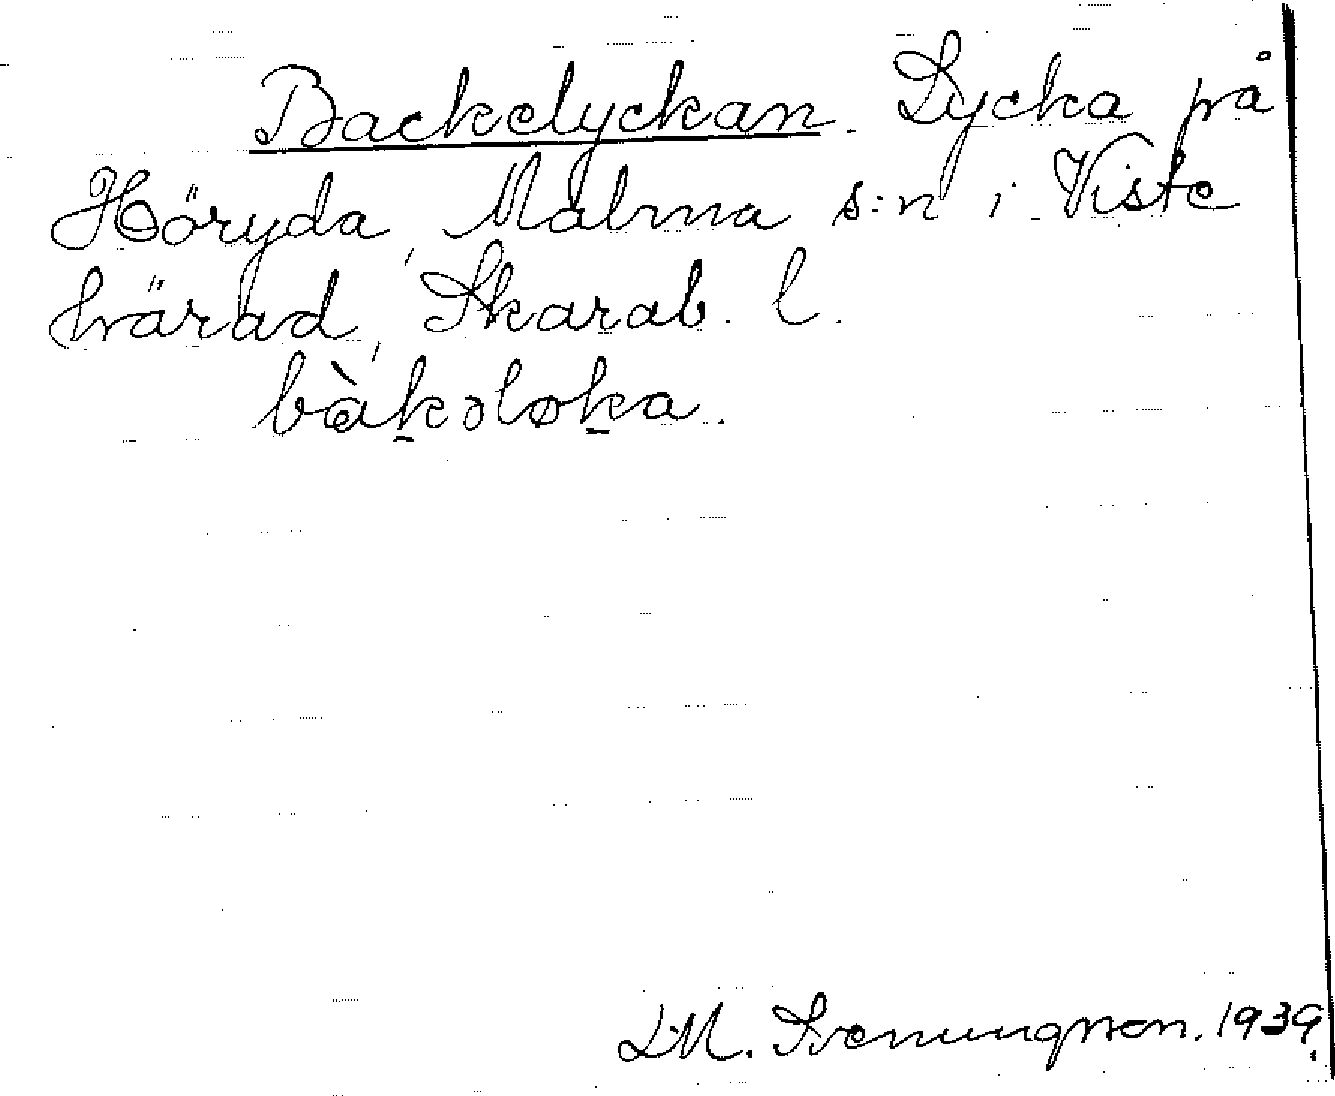 Backelyckan. Lycka på
Höryda, Malma s:n i Viste
härad, Skarab. l.
bàk̠əløk̠a.
L.M. Svenungsson. 1939.